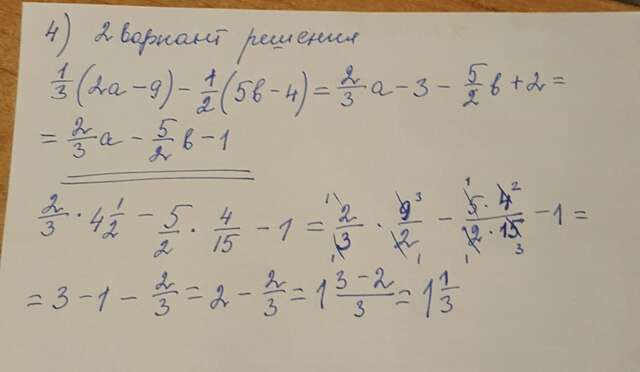 4) 2 вариант решения
1/3 (2a - 9) - 1/2 (5в - 4) = 2/3 a - 3 - 5/2 в + 2 =
= 2/3 a - 5/2 в - 1
2/3 · 4 1/2 - 5/2 · 4/15 - 1 = 2/3 · 9/2 - 5·4/2·15 - 1 =
= 3 - 1 - 2/3 = 2 - 2/3 = 1 3-2/3 = 1 1/3